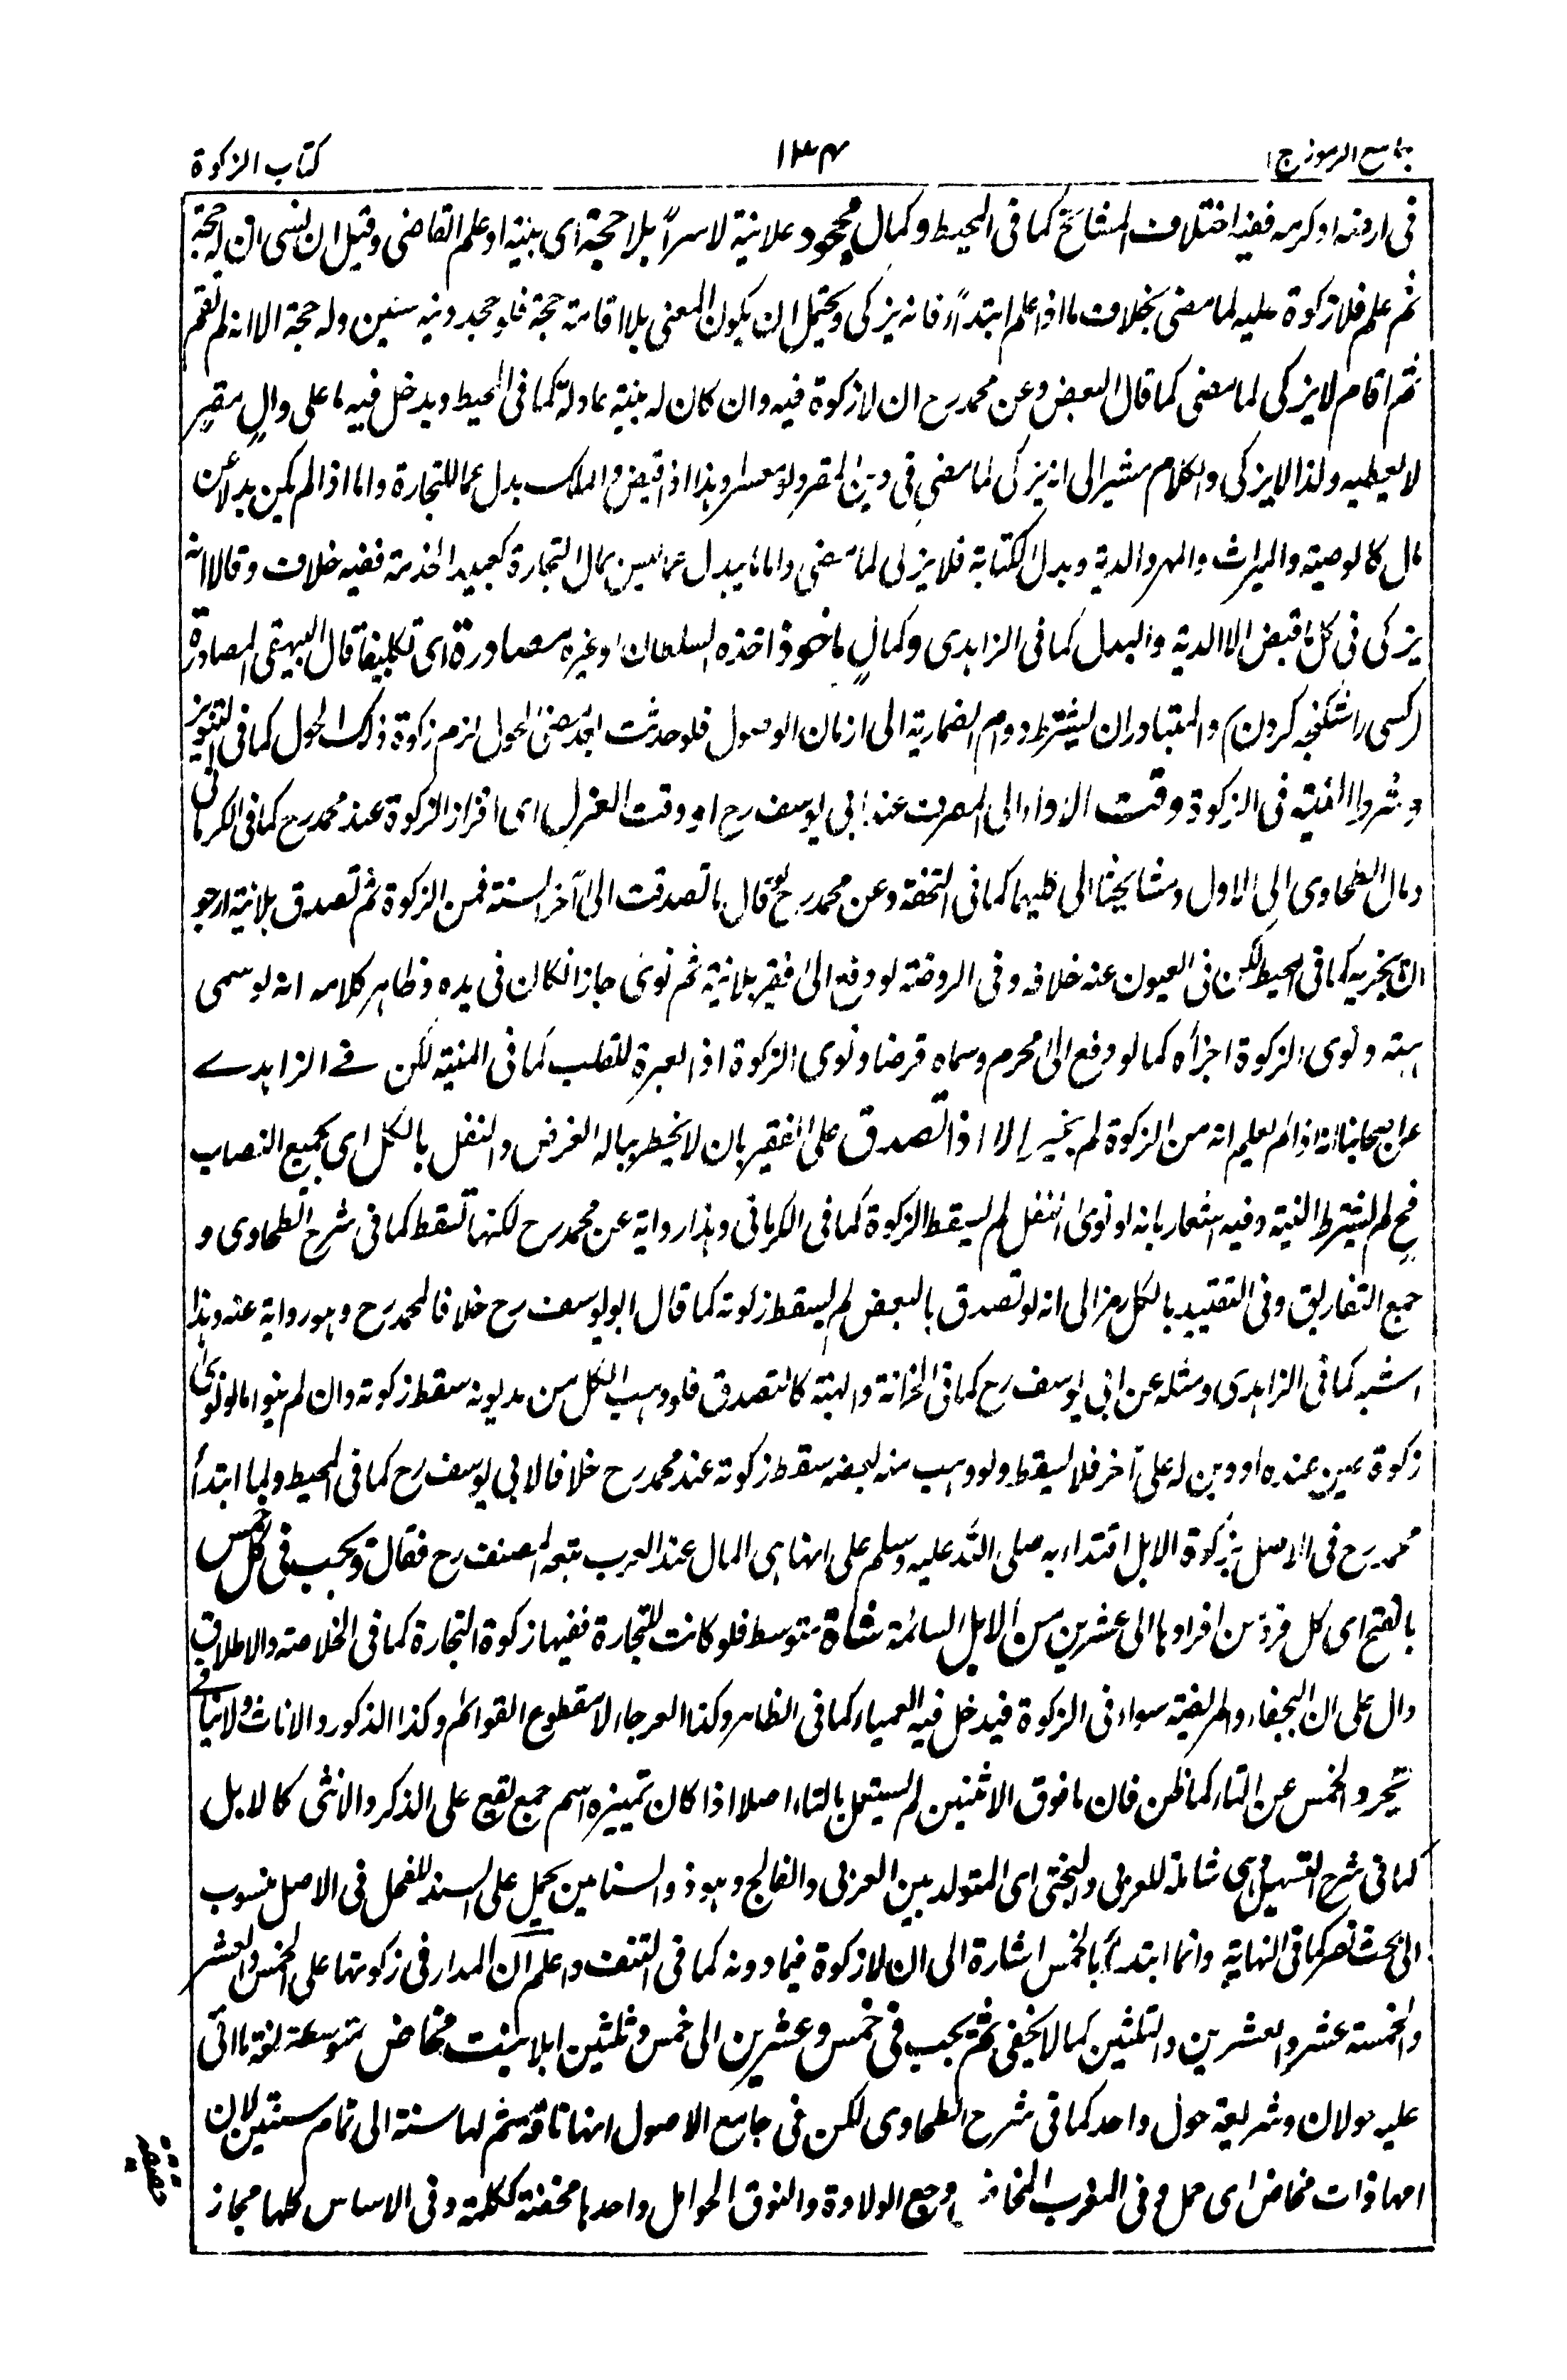 جامع الرموز ج ١
١٣٤
كتاب الزكوة
فى ارضه او كرمه ففيه اختلاف المشائخ كما فى المحيط وكمال مجحود علانية لا سراً بلا حجة اى بينة او علم القاضى وقيل ان نسى ان له حجة
ثم علم فلا زكوة عليه لما مضى بخلاف ما اذا علم ابتداءً فانه يزكى ويحتمل ان يكون المعنى بلا اقامة حجة فلو جحد دينه سنين وله حجة الا انه لم تقم
ثم اقام لا يزكى لما مضى كما قال البعض وعن محمد رح ان لا زكوة فيه وان كان له بينة عادلة كما فى المحيط ويدخل فيه ما على والٍ مقرٍ
لا يعطيه ولذا لا يزكى والكلام مشير الى انه يزكى لما مضى فى دين المقر ولو معسرا وهذا اذا قبض والملك بدل عما للتجارة واما اذا لم يكن بدلا عن
مال كالوصية والميراث والمهر والدية وبدل الكتابة فلا يزكى لما مضى واما ما يبدل عما ليس بمال التجارة كعبيد الخدمة ففيه خلاف وقالا انه
يزكى فى كل ما قبض الا الدية والبدل كما فى الزاهدى وكمالٍ ماخوذ اخذه السلطان او غيره مصادرة اى تكليفا قال البيهقى المصادرة
(كسى را شكنجه كردن) والمتبادر ان يشترط دوام الضمارية الى ازمان الوصول فلو حدثت بعد مضى الحول لزم زكوة ذلك الحول كما فى
وشرط النية فى الزكوة وقت الاداء الى المصرف عند ابى يوسف رح او وقت العزل اى افراز الزكوة عند محمد رح كما فى الكرمانى
ومال الطحاوى الى الاول ومشايخنا الى كليهما كما فى التحفة وعن محمد رح لو قال ما تصدقت الى آخر السنة فمن الزكوة ثم تصدق بلا نية ارجو
ان يجزيه كما فى المحيط لكن فى العيون عنه خلافه وفى الروضة لو دفع الى فقير بلا نية ثم نوى جاز ان كان فى يده وظاهر كلامه انه لو سمى
هبته ونوى الزكوة اجزأه كما لو دفع الى محرم وسماه قرضا ونوى الزكوة اذ العبرة للقلب كما فى المنية لكن فے الزاہدے
عن اصحابنا انه اذا لم يعلم انه من الزكوة لم يجز الا اذا تصدق على الفقير بان لا يخطر بباله الفرض والنفل بالكل اى بجميع النصاب
فح لم يشترط النية وفيه اشعار بانه لو نوى النفل لم يسقط الزكوة كما فى الكرمانى وهذا رواية عن محمد رح لكنها تسقط كما فى شرح الطحاوى و
جمع التفاريق وفى التقييد بالكل رمز الى انه لو تصدق بالبعض لم يسقط زكوته كما قال ابو يوسف رح خلافا لمحمد رح وهو رواية عنه وهذا
اشبه كما فى الزاهدى ومثله عن ابى يوسف رح كما فى الخزانة والهبة كالتصدق فلو وهب الكل من مديونه سقط زكوته وان لم ينو اما لو نوى
زكوة عين عنده او دين له على آخر فلا يسقط ولو وهب منه بعضه سقط زكوته عند محمد رح خلافا لابى يوسف رح كما فى المحيط ولما ابتدأ
محمد رح فى الاصل بزكوة الابل اقتداء به صلى الله عليه وسلم على انها هى المال عند العرب تبعه المصنف رح فقال ويجب فى كل خمس
بالفتح اى كل فرد من افرادها الى عشرين من الابل السائمة شاة متوسط فلو كانت للتجارة ففيها زكوة التجارة كما فى الخلاصة والاطلاق
دال على ان العجفاء والمريضة سواء فى الزكوة فيدخل فيه العمياء كما فى الظاهر وكذا العرجاء لا مقطوع القوائم وكذا الذكور والاناث ولا ينافى
تجرد الخمس عن التاء كما ظن فان ما فوق الاثنين لم يستعمل بالتاء اصلا اذا كان تمييزه اسم جمع يقع على الذكر والانثى كالابل
كما فى شرح التسهيل وهى شاملة للعربى والبختى اى المتولد بين العربى والفالج وهو ذو السنامين يحمل على السند للفحل فى الاصل منسوب
الى بخت نصر كما فى النهاية وانما ابتدأ بالخمس اشارة الى ان لا زكوة فيما دونه كما فى النتف واعلم ان المدار فى زكوتها على الخمس والعشر
والخمسة عشر والعشرين والثلثين كما لا يخفى ثم يجب فى خمس وعشرين الى خمس وثلثين ابلا بنت مخاض متوسطة لغة ما اتى
عليه حولان وشريعة حول واحد كما فى شرح الطحاوى لكن فى جامع الاصول انها ناقة تم لها سنة الى تمام سنتين لان
امها ذات مخاض اى حمل وفى المغرب المخاض وجع الولادة والنوق الحوامل واحدها مخضة ككلمة وفى الاساس كلها مجاز